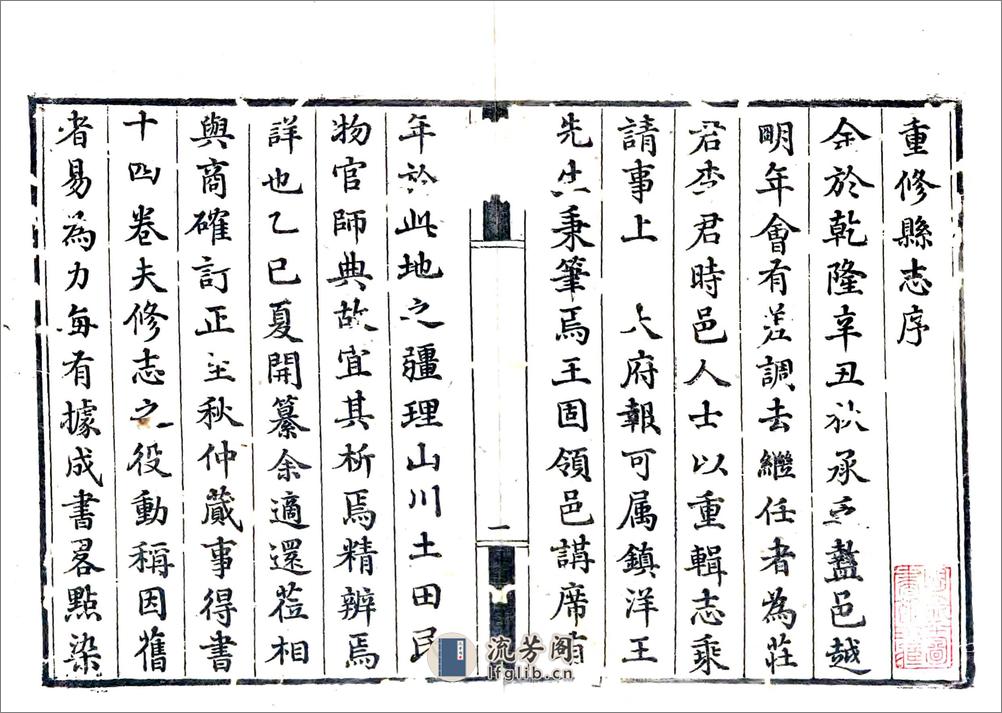 重修縣志序
余於乾隆辛丑秋承乏盩邑越
明年會有差調去繼任者為莊
君李君時邑人士以重輯志乘
請事上 大府報可属鎮洋王
先生秉筆焉王固領邑講席有
年於此地之疆理山川土田民
物官師典故宜其析焉精辨焉
詳也乙巳夏開纂余適還莅相
與商確訂正至秋仲蕆事得書
十四卷夫修志之役動稱因舊
者易為力每有據成書畧點染
一
流芳阁
lfglib.cn